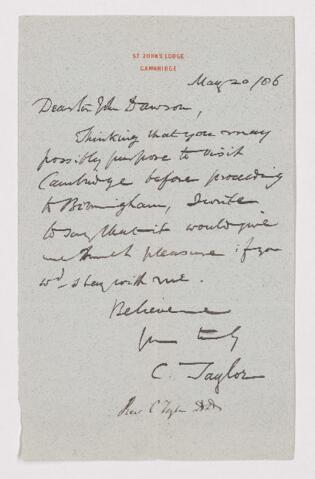 ST JOHN'S LODGE
CAMBRIDGE
May 20/86
Dear Sir John Dawson,
Thinking that you may
possibly purpose to visit
Cambridge before proceeding
to Birmingham, I write
to say that it would give
me much pleasure if you
wd. stay with me.
Believe me
yours truly
C. Taylor
Rev. C Taylor D.D.